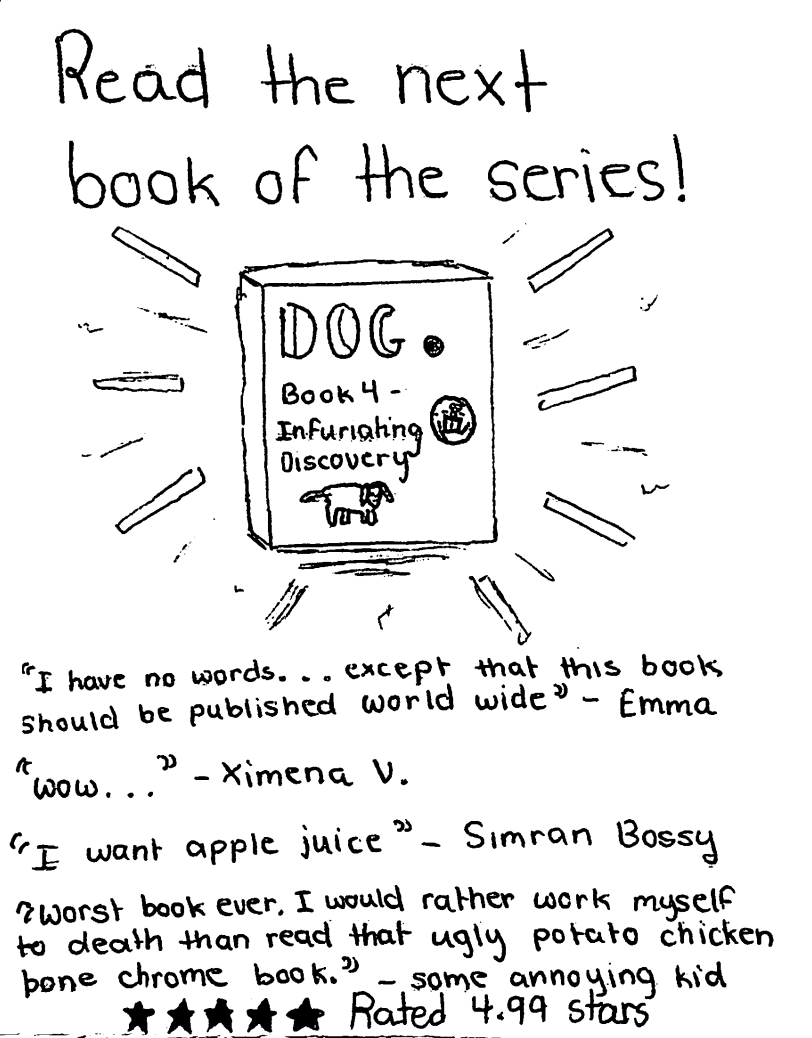 Read the next
book of the series!
DOG.
Book 4 -
Infuriating
Discovery
"I have no words... except that this book
should be published world wide" - Emma
"wow..." - Ximena V.
"I want apple juice" - Simran Bossy
"Worst book ever. I would rather work myself
to death than read that ugly potato chicken
bone chrome book." - some annoying kid
★★★★★ Rated 4.99 stars